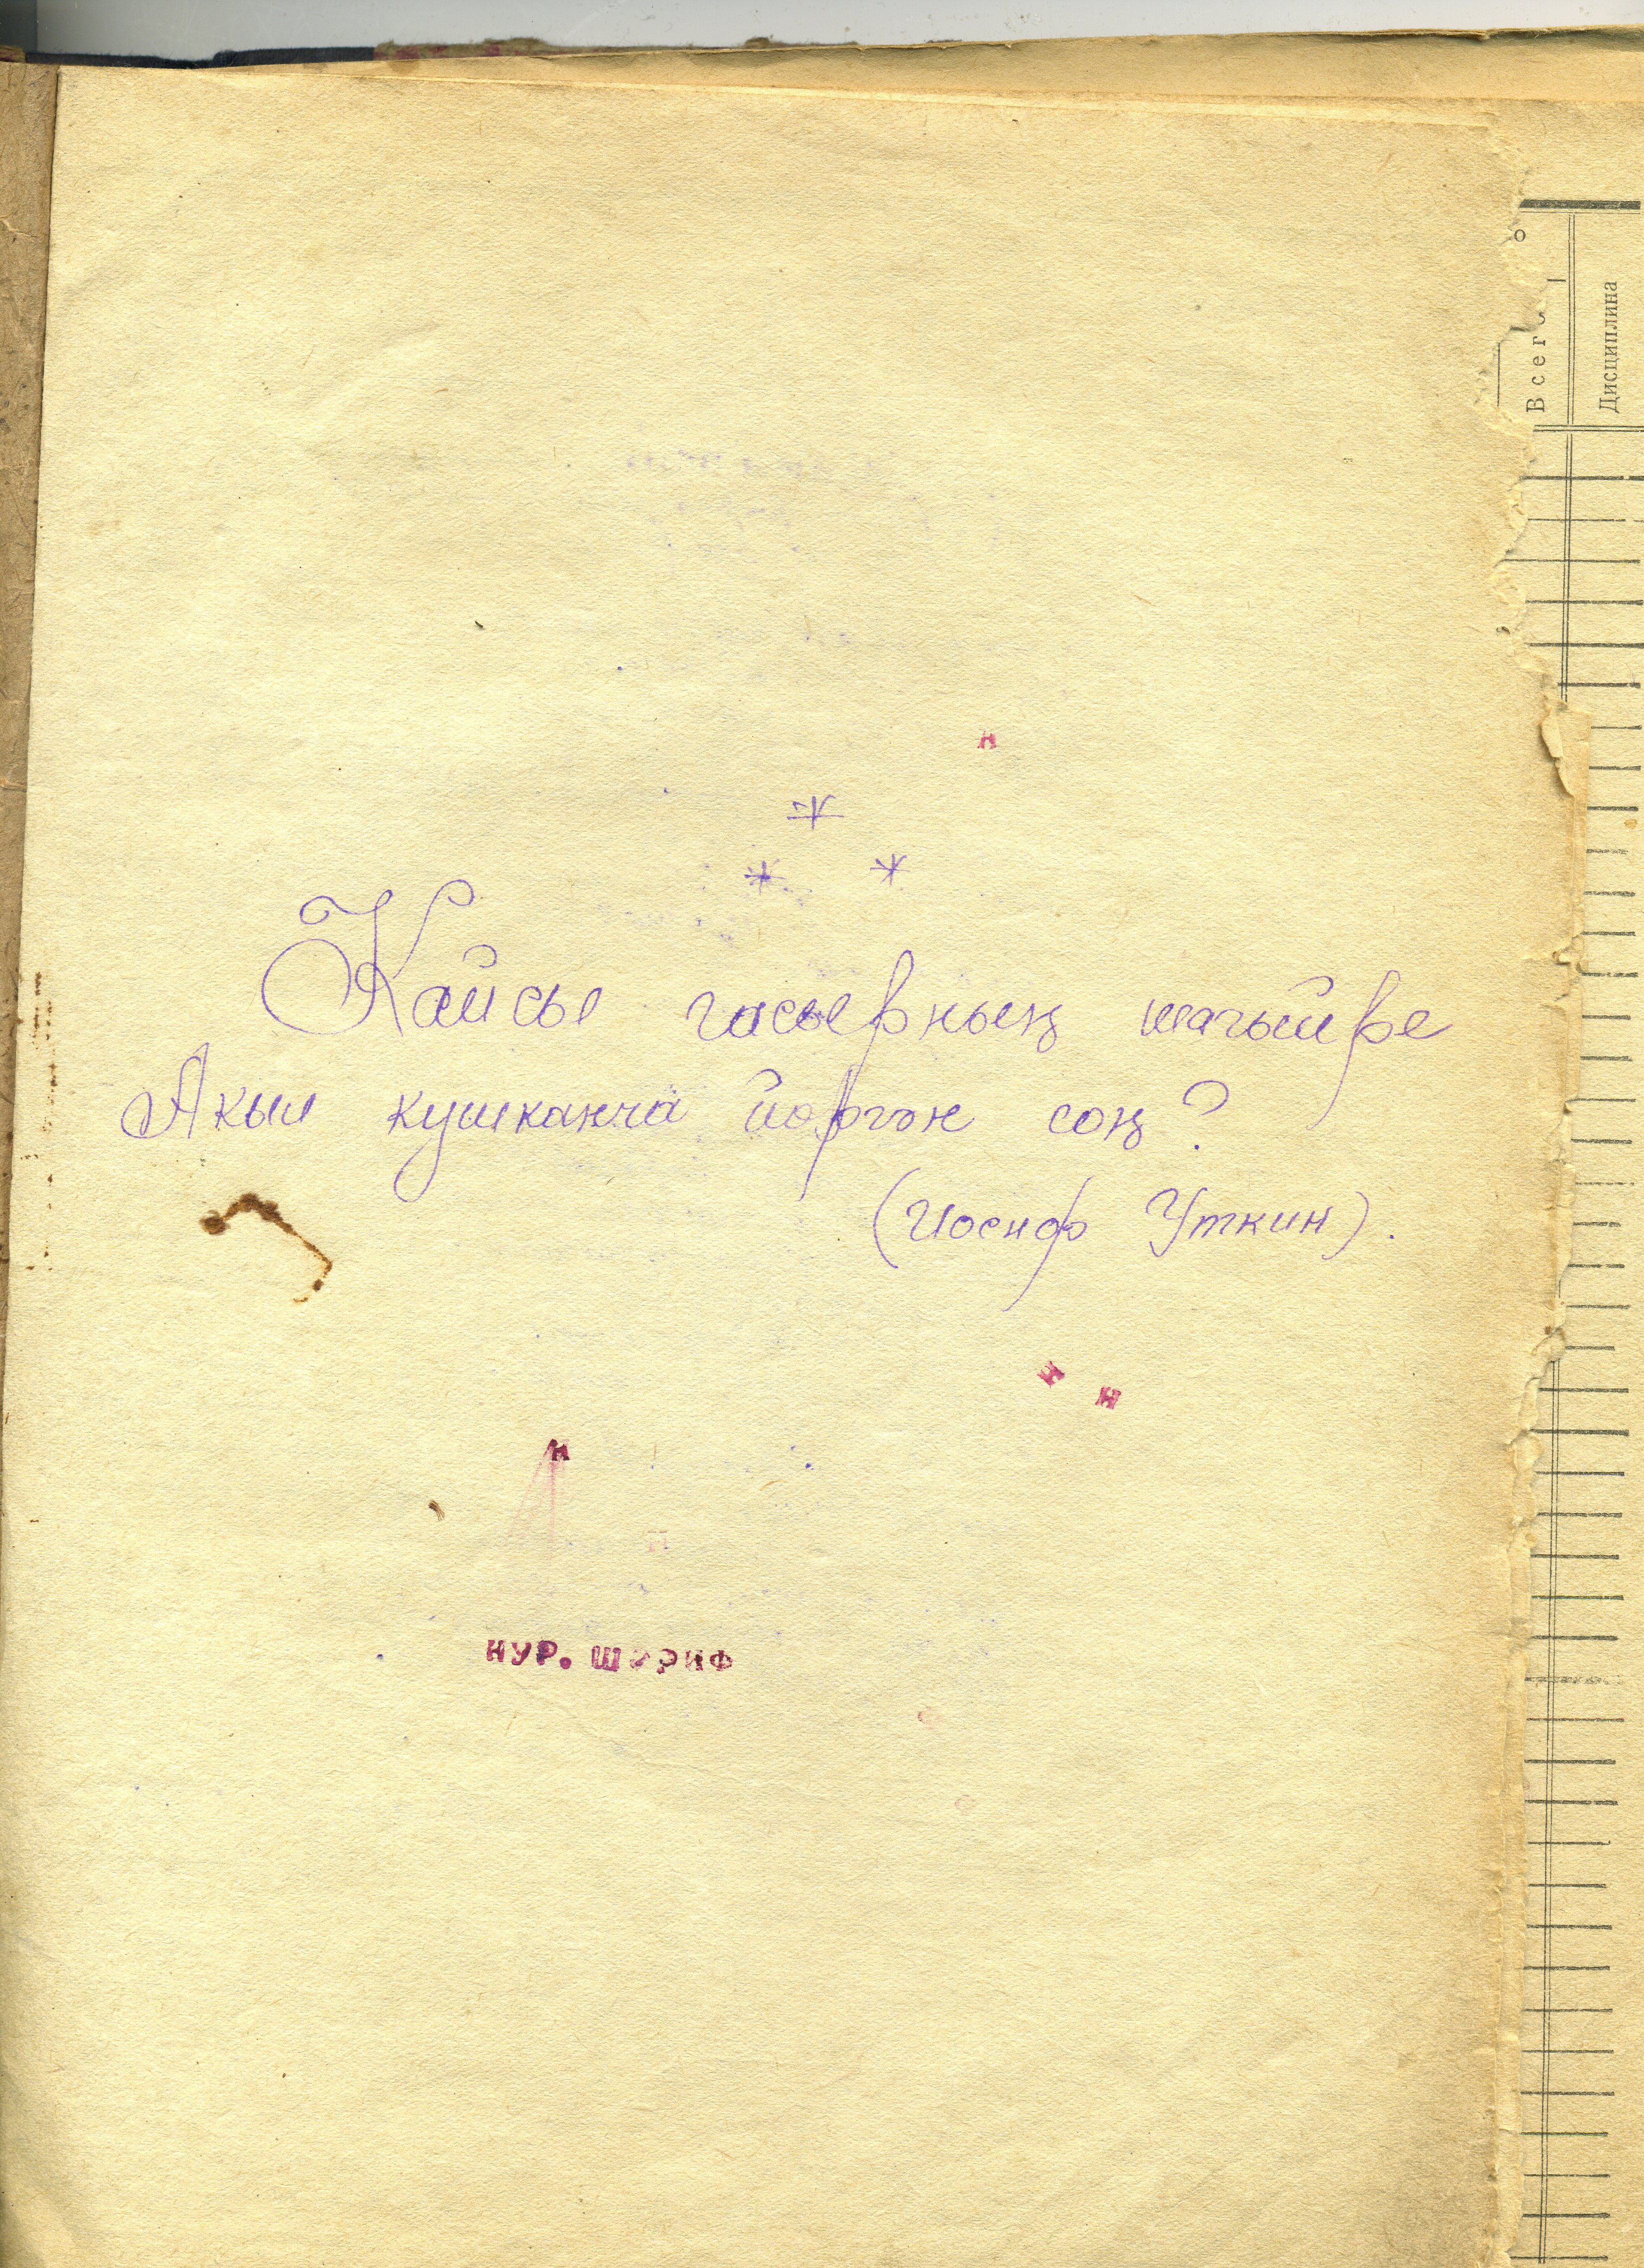 н
*
* *
Кайсы гасырның шагыйре
Акыл кушканча йөргән соң?
(Иосиф Уткин).
н н
н
н
НУР. ШӘРИФ
Всего
Дисциплина